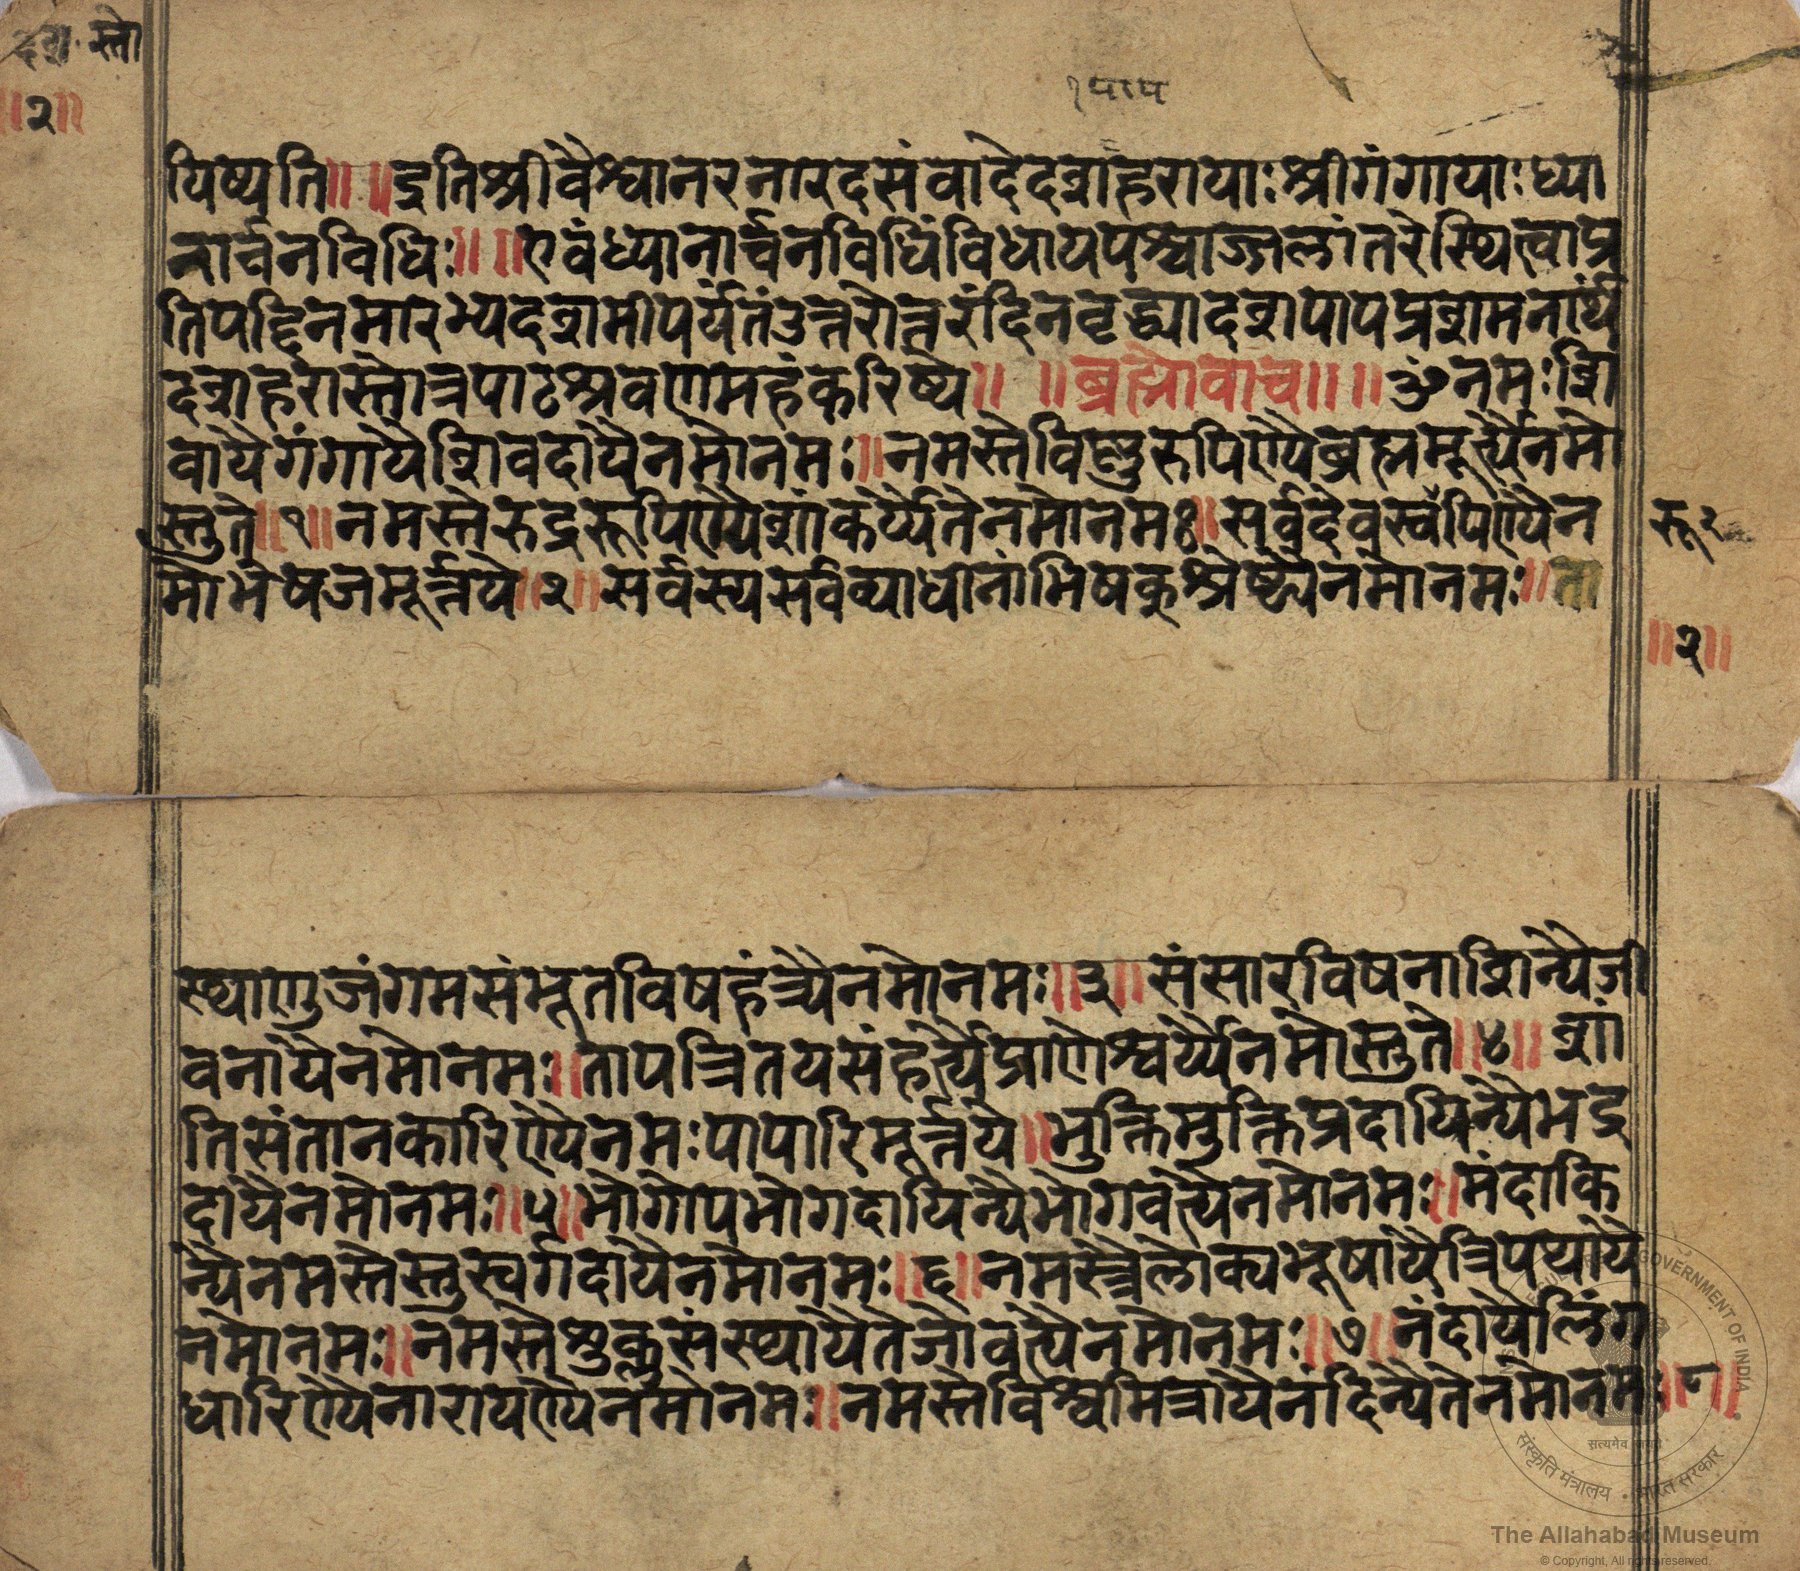 दश. स्तो
॥२॥
१ पाप
यिष्यति॥ ॥इतिश्रीवैश्वानरनारदसंवादेदशहरायाःश्रीगंगायाःध्या
नार्चनविधिः॥ ॥एवंध्यानार्चनविधिंविधायपश्चाज्जलांतरेस्थित्वाप्र
तिपद्दिनमारभ्यदशमीपर्यंतंउत्तरोत्तरंदिनवृद्ध्यादशपापप्रशमनार्थं
दशहरास्तोत्रपाठश्रवणमहंकरिष्ये॥ ॥ब्रह्मोवाच॥ ॥ॐनमःशि
वायैगंगायैशिवदायैनमोनमः॥नमस्तेविष्णुरुपिण्यैब्रह्ममूर्त्यैनमो
स्तुते॥१॥नमस्तेरुद्ररूपिण्यैशांकर्य्यैतेनमोनमः॥सर्वदेवस्वपिण्यैन
रू २
मोभेषजमूर्त्तये॥२॥सर्वस्यसर्वव्याधीनांभिषक्श्रेष्ठ्यैनमोनमः॥ता
॥२॥
स्थाणुजंगमसंभूतविषहंत्र्यैनमोनमः॥३॥संसारविषनाशिन्यैजी
वनायैनमोनमः॥तापत्रितयसंहर्त्र्यैप्राणेश्वर्य्यैनमोस्तुते॥४॥शां
तिसंतानकारिण्यैनमःपापारिमूर्त्तये॥भुक्तिमुक्तिप्रदायिन्यैभद्र
दायैनमोनमः॥५॥भोगोपभोगदायिन्यैभोगवत्यैनमोनमः॥मंदाकि
न्यैनमस्तेस्तुस्वर्गदायैनमोनमः॥६॥नमस्त्रैलोक्यभूषायैत्रिपथायै
नमोनमः॥नमस्तेशुक्लसंस्थायैतेजोवत्यैनमोनमः॥७॥नंदायैलिंग
धारिण्यैनारायण्यैनमोनमः॥नमस्तेविश्वमित्रायैनंदिन्यैतेनमोनमः॥८॥
GOVERNMENT OF INDIA
सत्यमेव जयते
संस्कृति मंत्रालय · भारत सरकार
The Allahabad Museum
© Copyright, All rights reserved.